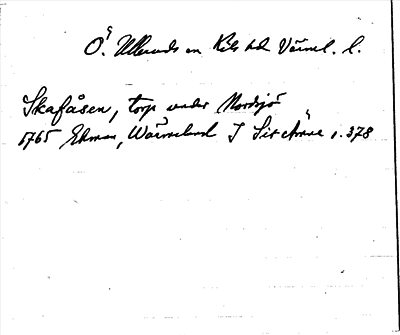 Ö. Ulleruds sn Kils hd Värml. l.
Skafåsen, torp under Nordsjö
1765 Ekman, Wärmeland I Sitt ämne s. 378